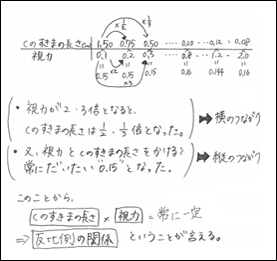 ×1/2 ×1/3
Cのすきまの長さ(cm) 1.50 0.75 0.50 ‥‥ 0.20 ‥ 0.12 ‥ 0.08
視力 0.1 0.2 0.3 ‥‥ 0.8 ‥ 1.2 ‥ 2.0
×2
×3
0.15 0.15 0.15 0.15 0.144 0.16
・視力が2・3倍となると、
Cのすきまは1/2・1/3倍となった。 ➡ 横のつながり
・又、視力とCのすきまの長さをかけると
常にだいたい"0.15"となった。 ➡ 縦のつながり
このことから、
Cのすきまの長さ × 視力 = 常に一定
⇒ 反比例の関係 ということが言える。